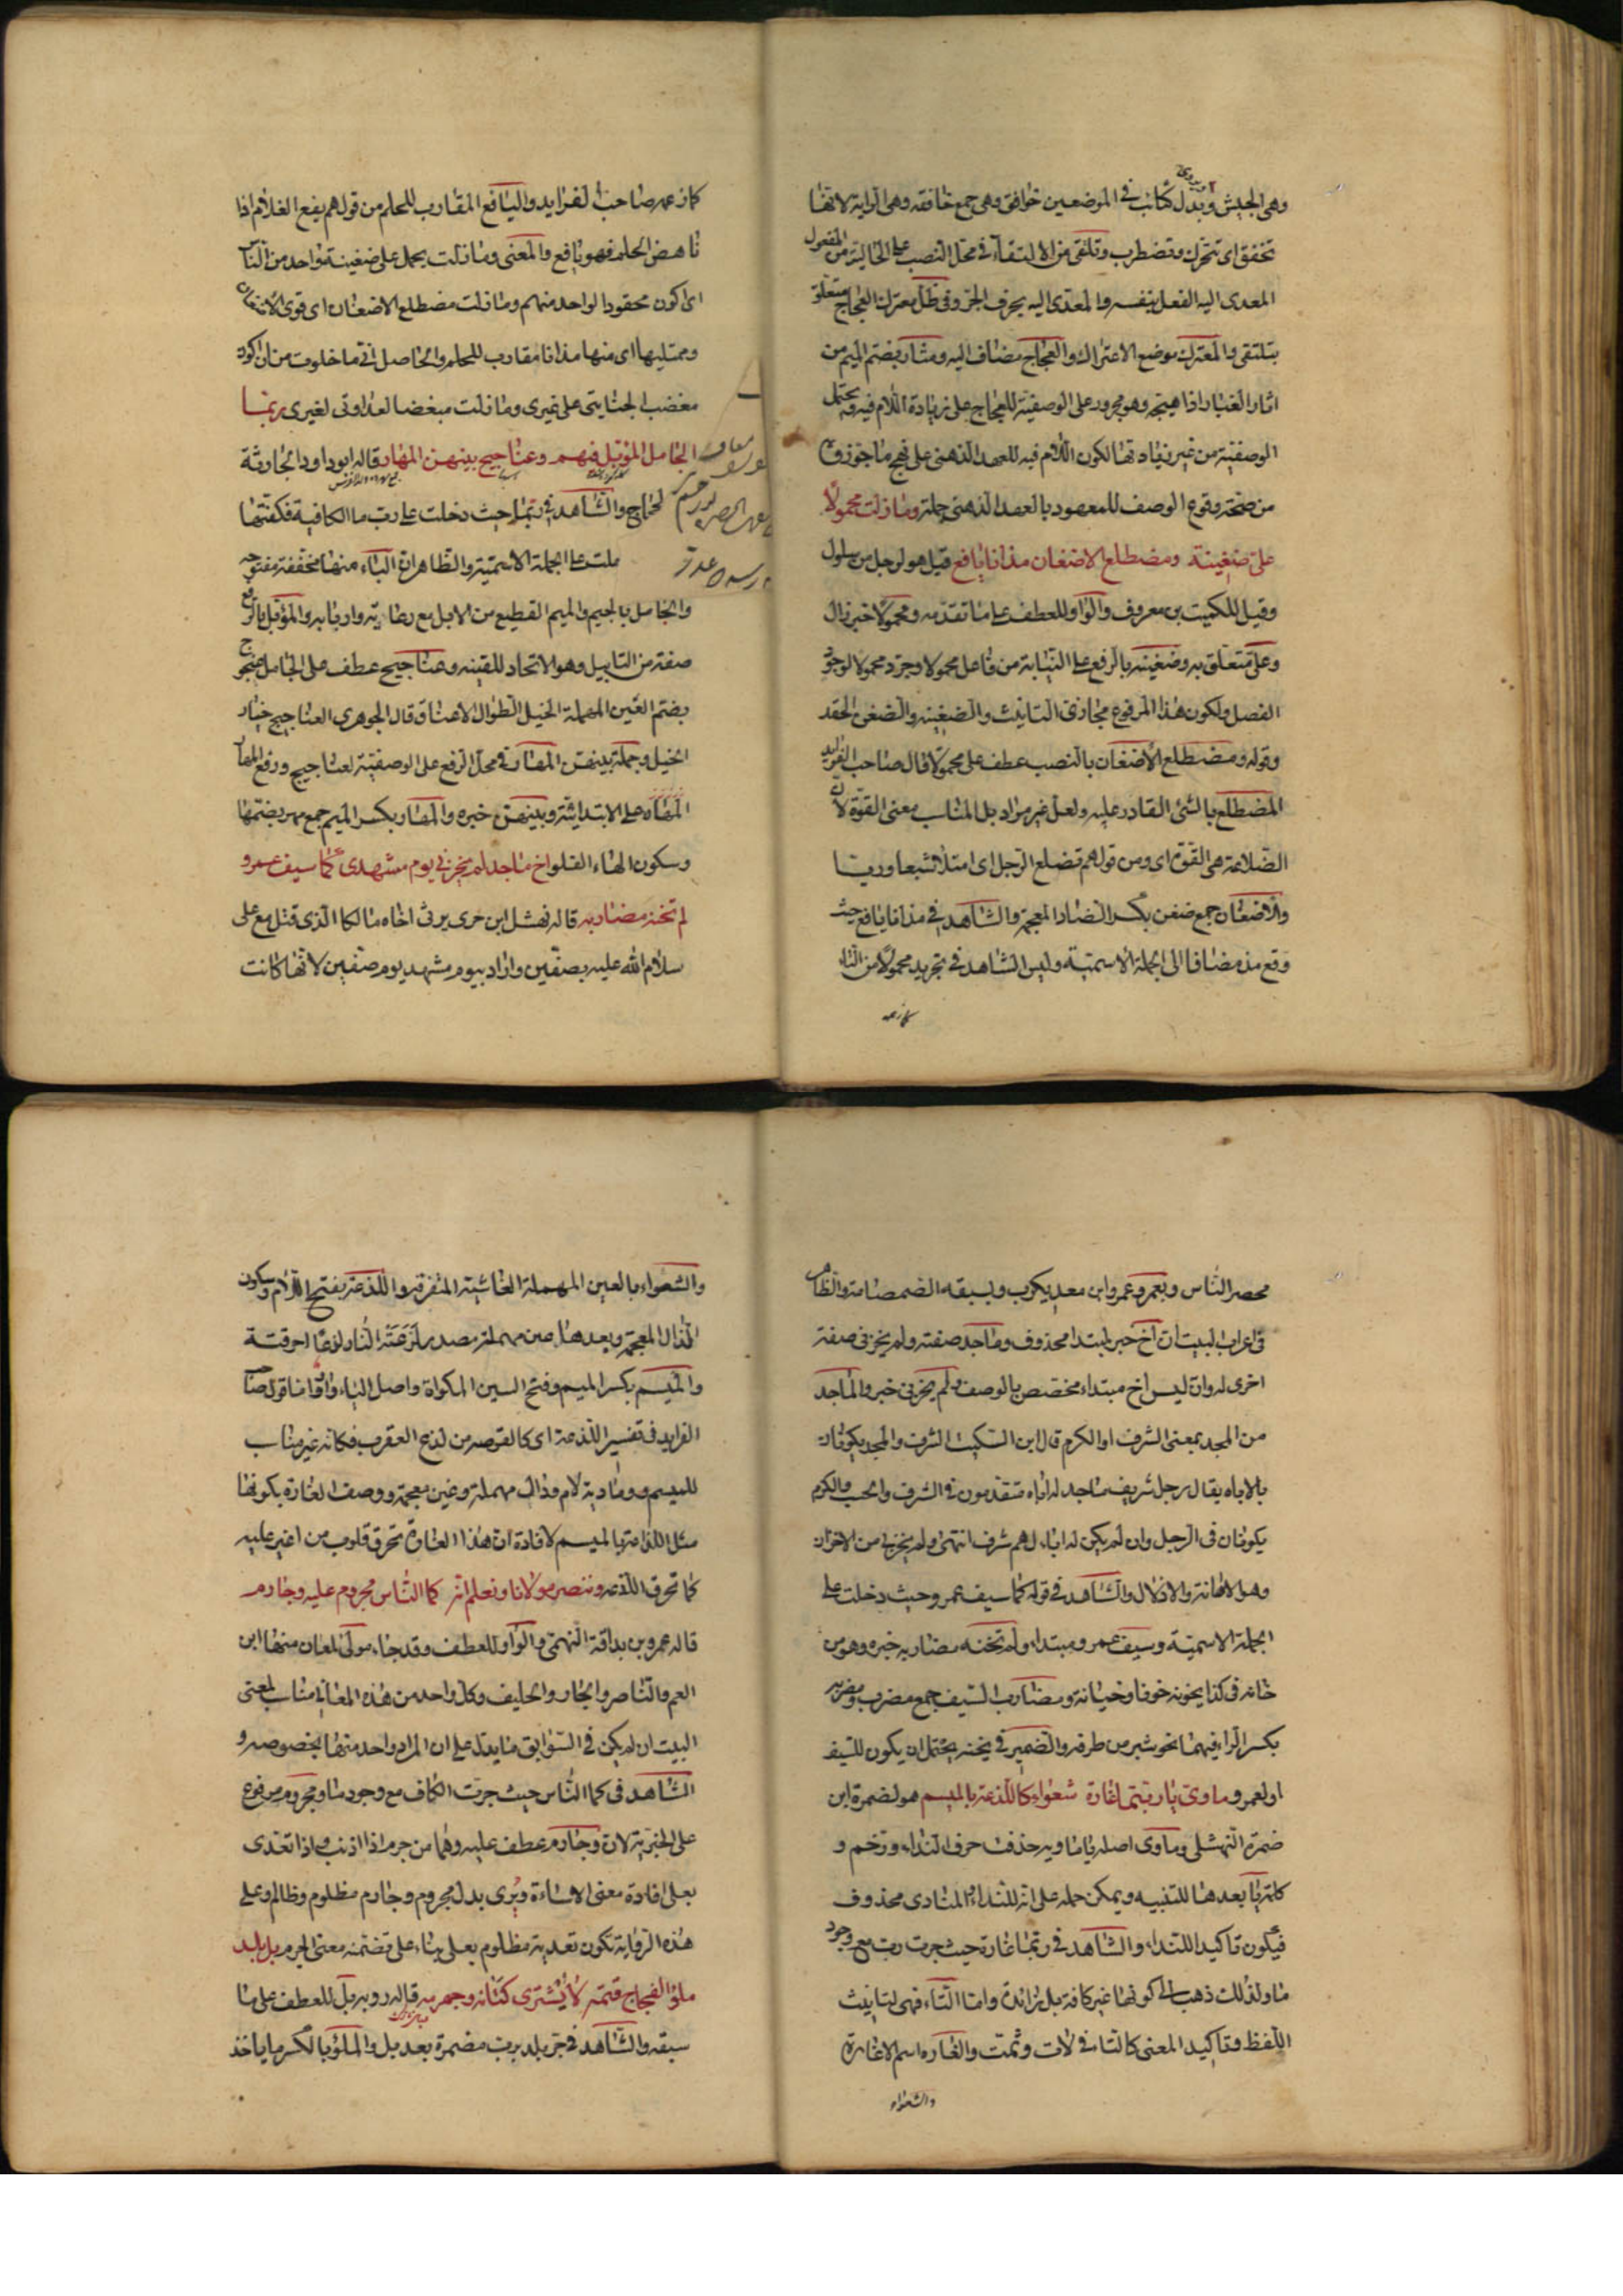 وهى الجيش وبدل كتائب فى الموضعين خوافق وهى جمع خافقة وهى الراية لانها
تخفق اى تتحرك وتضطرب وتلتقى من الالتقاء فى محل النصب على الحالية من المفعول
المعدى اليه الفعل بنفسه والمعدى اليه بحرف الجر وفى ظل معترك العجاج متعلق
بتلتقى والمعترك موضع الاعتراك والعجاج مضاف اليه ومثار بضم الميم من
اثار الغبار اذا هيجه وهو مجرور على الوصفية للعجاج على زيادة اللام فيه ويحتمل
الوصفية من غير زيادتها لكون اللام فيه للعهد الذهنى على نهج ما جوزوه
من صحة وقوع الوصف للمعهود بالعهد الذهنى جملة وما زلت محمولا
على ضغينة ومضطلع الاضغان مذ انا يافع قيل هو لرجل من سلول
وقيل للكميت بن معروف والواو للعطف على ما تقدمه ومحمولا خبر زال
وعلى متعلق به وضغينة بالرفع على النيابة من فاعل محمولا وجرد محمولا لوجود
الفصل ولكون هذا المرفوع مجازى التانيث والضغينة والضغن الحقد
وقوله ومضطلع الاضغان بالنصب عطف على محمولا قال صاحب الفرايد
المضطلع بالشئ القادر عليه ولعله غير مراد بل المناسب معنى القوة لان
الضلاعة هى القوة اى ومن قولهم تضلع الرجل اى امتلأ شبعا وريا
والاضغان جمع ضغن بكسر الضاد المعجمة والشاهد فى مذ انا يافع حيث
وقع مذ مضافا الى الجملة الاسمية وليس الشاهد فى تجريد محمولا من التاء
كما زعمه
كما زعمه صاحب الفرايد واليافع المقارب للحلم من قولهم يفع الغلام اذا
ناهض الحلم فهو يافع والمعنى وما زلت يحمل على ضغينة واحد من الناس
اى اكون محقودا لواحد منهم وما زلت مضطلع الاضغان اى قوى الاضغان
وممتليها اى منها مذ انا مقارب للحلم والحاصل انى ما خلوت من ان اكون
مغضبا لجنايتى على غيرى وما زلت مبغضا لعداوتى لغيرى ربما
الجامل المؤبل فيهم وعناجيج بينهن المهار قاله ابو داود الجارية
لحجاج والشاهد فى ربما حيث دخلت على رب ما الكافية فكفتها
ملت على الجملة الاسمية والظاهر ان الباء منها مخففة مفتوحة
والجامل بالجيم والميم القطيع من الابل مع رعايه واربابه والمؤبل بالرفع
صفة من التابيل وهو الاتحاد للقينه وعناجيج عطف على الجامل عنجوج
بضم العين المهملة الخيل الطوال الاعناق قال الجوهرى العناجيج خيار
الخيل وجملة بينهن المهار فى محل الرفع على الوصفية لعناجيج ورفع المهار
المهار على الابتدائية وبينهن خبره والمهار بكسر الميم جمع مهر بضمها
وسكون الهاء الفلو اخ ماجد لم يخزنى يوم مشهد كما سيف عمرو
لم تخنه مضاربه قاله نهشل ابن حرى يرثى اخاه مالكا الذى قتل مع على
سلام الله عليه بصفين واراد بيوم مشهد يوم صفين لانها كانت
محصر الناس وبعمرو عمرو ابن معديكرب وبسيفه الصمصامة والظاهر
فى اعراب البيت ان اخ خبر لمبتدا محذوف وماجد صفته ولم يخزنى صفة
اخرى له وان ليس اخ مبتداء مختصص بالوصف ولم يخزنى خبر والماجد
من المجد بمعنى الشرف او الكرم قال ابن السكيت الشرف والمجد يكونان
بالاباء يقال رجل شريف ماجد له اباء متقدمون فى الشرف والحسب والكرم
يكونان فى الرجل وان لم يكن له اباء لهم شرف انتهى ولم يخزنى من الاخزاء
وهو الاهانة والاذلال والشاهد فى قوله كما سيف عمرو حيث دخلت على
الجملة الاسمية وسيف عمرو مبتداء ولم تخنه مضاربه خبره وهو من
خانه فى كذا يخونه خونا وخيانة ومضارب السيف جمع مضرب ومضربه
بكسر الراء فيهما نحو شبر من طرفه والضمير فى يخنه يحتمل ان يكون للسيف
او لعمرو وماوى يا ربتما غارة شعواء كاللذعة بالميسم هو لضمرة ابن
ضمرة النهشلى وماوى اصله يا ماويه حذف حرف النداء ورخم و
كلمة يا بعدها للتنبيه ويمكن حمله على انه للنداء والمنادى محذوف
فيكون تاكيدا للنداء والشاهد فى ربتما غارة حيث جرت رب مع وجود
ما ولذلك ذهب الى كونها غير كافة بل زائدة واما التاء فهى لتانيث
اللفظ وتاكيد المعنى كالتاء فى لات وثمت والغاره اسم الاغارة
والشعواء
والشعواء بالعين المهملة الغاشية المتفرقة واللذعة بفتح اللام وسكون
الذال المعجمة وبعدها عين مهملة مصدر لذعته النار لذعا احرقته
والميسم بكسر الميم وفتح السين المكواة واصل الياء واو واما قول صاحب
الفرايد فى تفسير اللذعة اى كالقرصه من لدغ العقرب فكانه غير مناسب
للميسم ومادية لام ودال مهملة وغين معجمة ووصف الغارة بكونها
مثل اللذعة بالميسم لافادة ان هذا الغارة تحرق قلوب من اغير عليه
كما تحرق اللذعه وننصر مولانا ونعلم انه كما الناس مجروم عليه وجارم
قاله عمرو بن براقة النهمى والواو للعطف وقد جاء مولى لمعان منها ابن
العم والناصر والجار والحليف وكل واحد من هذه المعانى مناسب لمعنى
البيت ان لم يكن فى السوابق ما يدل على ان المراد واحد منها بخصوصه و
الشاهد فى كما الناس حيث جرت الكاف مع وجود ما ومجروم مرفوع
على الخبرية لان وجارم عطف عليه وهما من جرم اذا اذنب واذا تعدى
بعلى افادة معنى الاساءة ويرى بدل مجروم وجارم مظلوم وظالم وعلى
هذه الرواية تكون تعدية مظلوم بعلى بناء على تضمنه معنى الجرم بل بلد
ملؤ الفجاج قتمه لا يشترى كتانه وجهرمه قاله روبه بل للعطف على ما
سبقه والشاهد فى جر بلد برب مضمرة بعد بل والملؤ بالكسر ما ياخذ